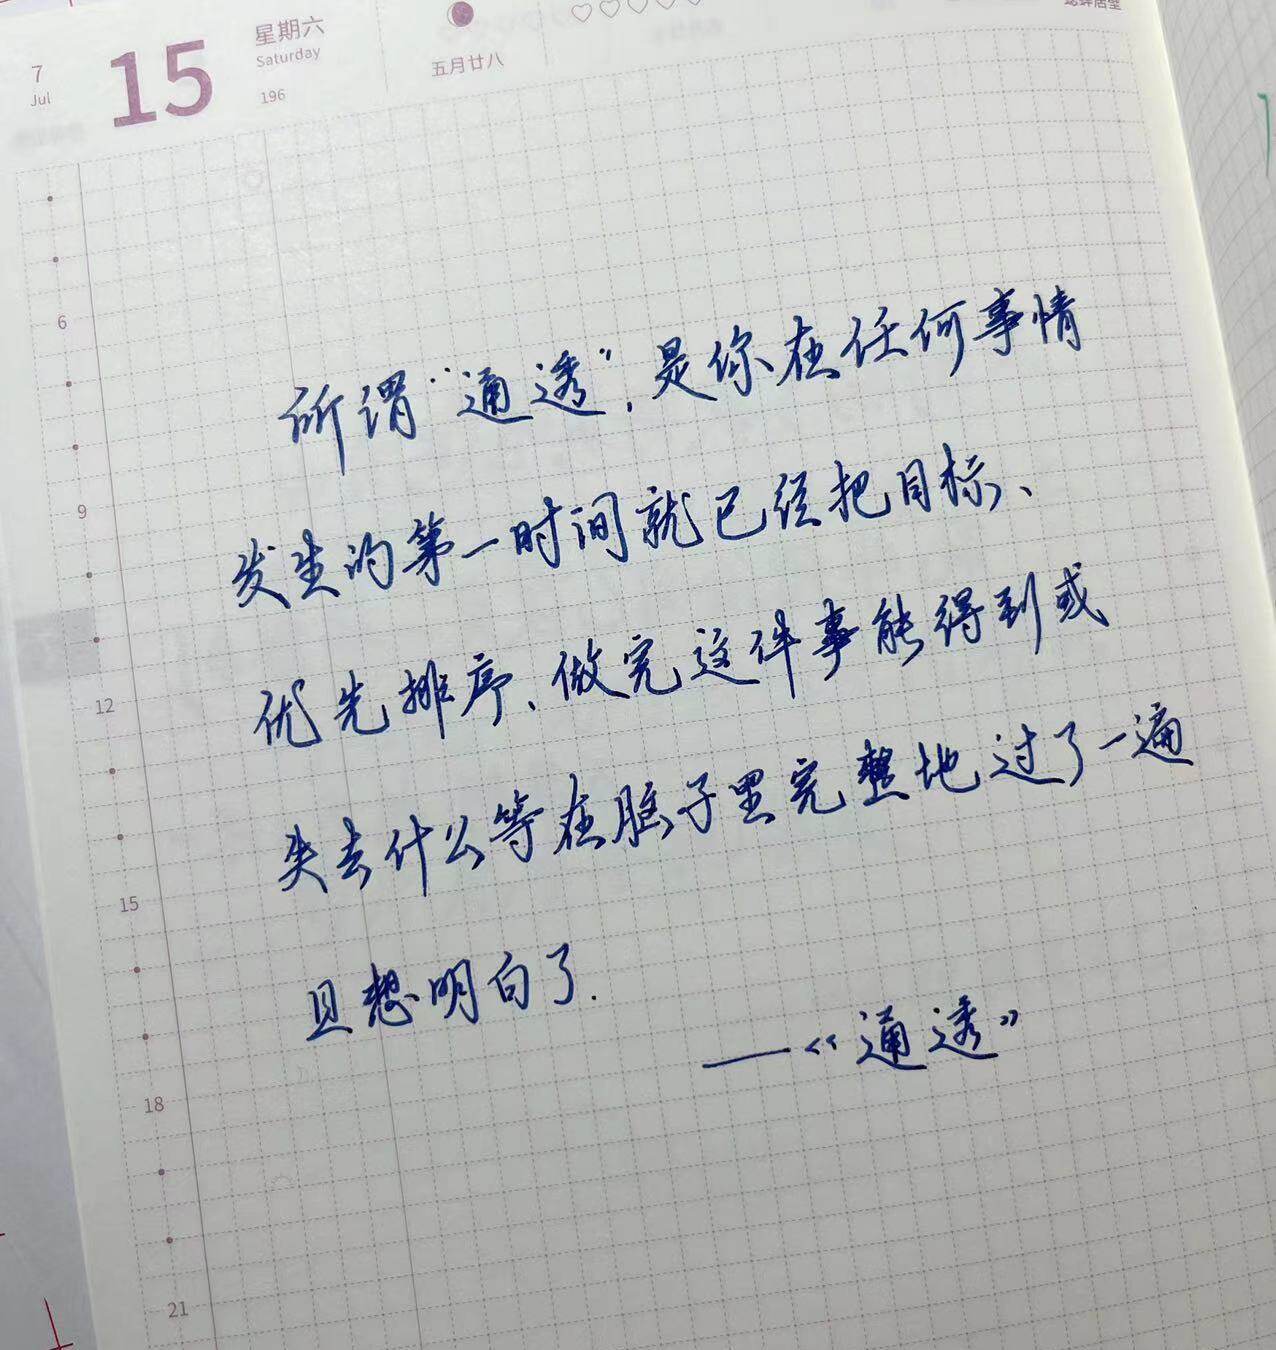 7
Jul
15
星期六
Saturday
196
五月廿八
所谓“通透”，是你在任何事情
发生的第一时间就已经把目标、
优先排序、做完这件事能得到或
失去什么等在脑子里完整地过了一遍
且想明白了.
——《通透》
6
9
12
15
18
21